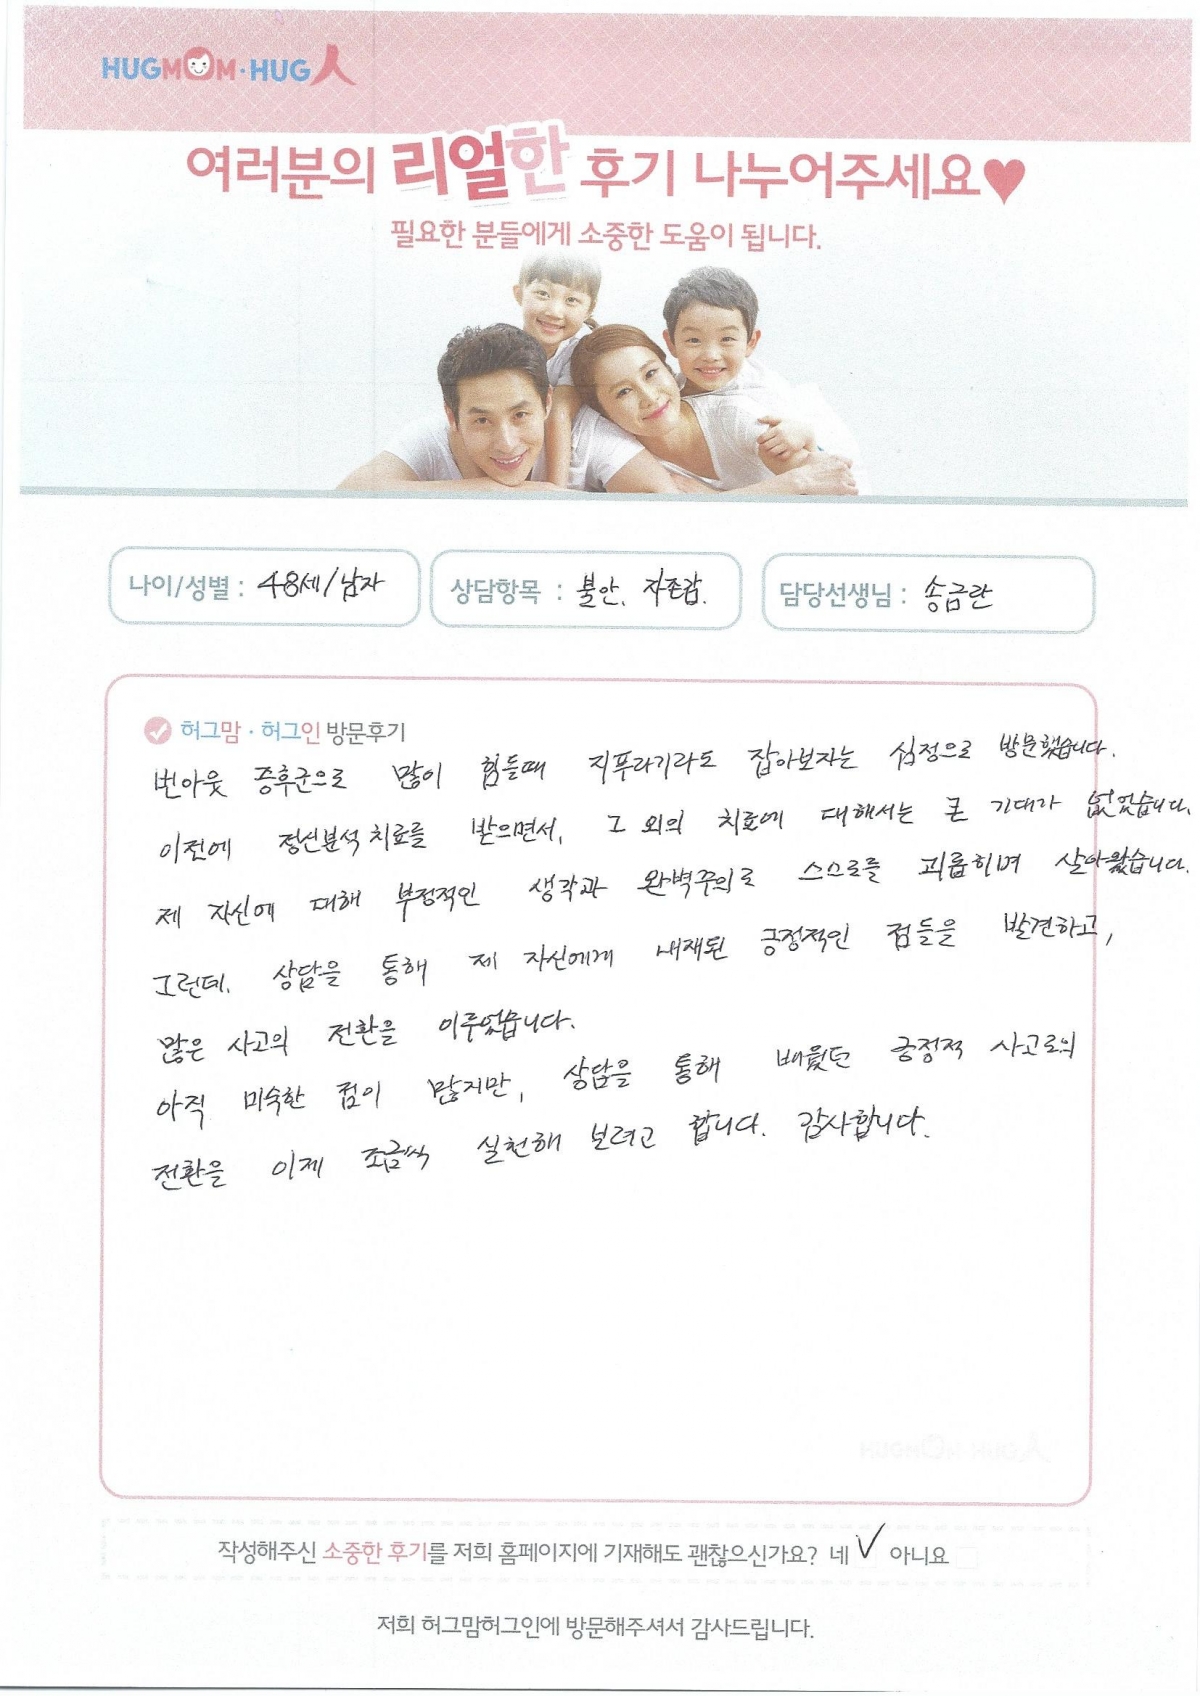 HUGMOM·HUG人
여러분의 리얼한 후기 나누어주세요♥
필요한 분들에게 소중한 도움이 됩니다.
나이/성별 : 48세/남자
상담항목 : 불안, 자존감.
담당선생님 : 송금란
허그맘·허그인 방문후기
번아웃 증후군으로 많이 힘들때 지푸라기라도 잡아보자는 심정으로 방문했습니다.
이전에 정신분석 치료를 받으면서, 그 외의 치료에 대해서는 큰 기대가 없었습니다.
제 자신에 대해 부정적인 생각과 완벽주의로 스스로를 괴롭히며 살아왔습니다.
그런데, 상담을 통해 제 자신에게 내재된 긍정적인 점들을 발견하고,
많은 사고의 전환을 이루었습니다.
아직 미숙한 점이 많지만, 상담을 통해 배웠던 긍정적 사고로의
전환을 이제 조금씩 실천해 보려고 합니다. 감사합니다.
작성해주신 소중한 후기를 저희 홈페이지에 기재해도 괜찮으신가요? 네 ✓ 아니요
저희 허그맘허그인에 방문해주셔서 감사드립니다.